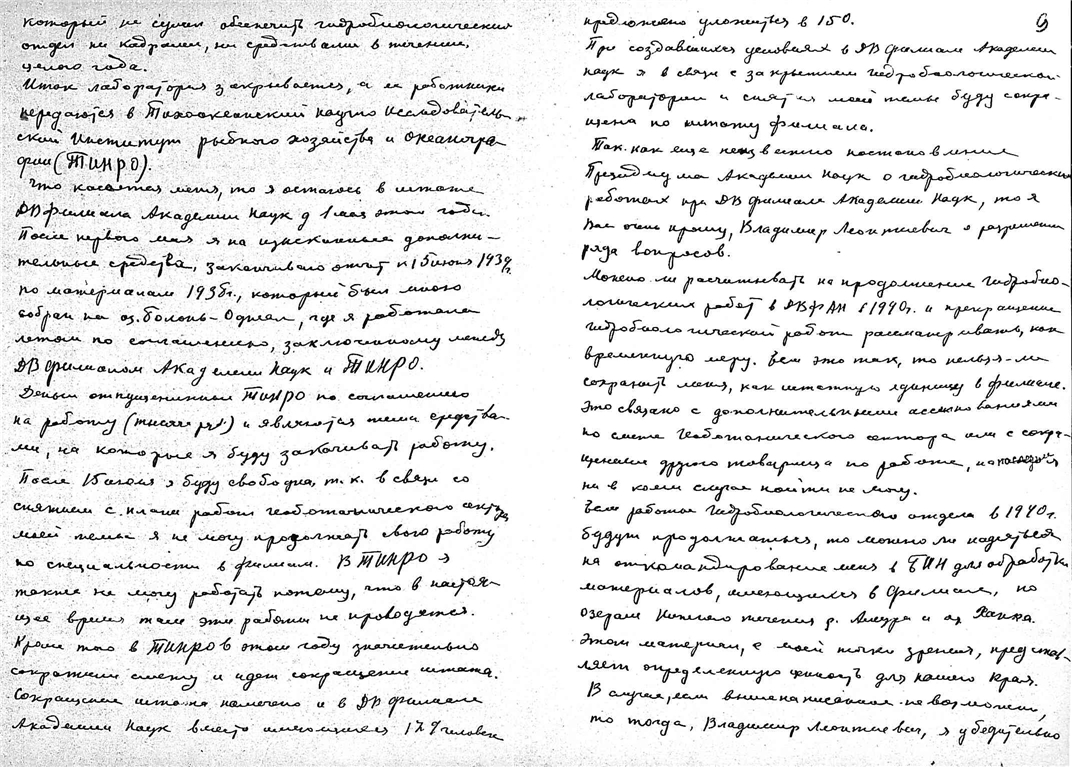 который не сумел обеспечить гидробиологический
отдел ни кадрами, ни средствами в течении
целого года.
Итак лаборатория закрывается, а ее работники
передаются в Тихоокеанский Научно Исследователь-
ский Институт рыбного хозяйства и океаногра-
фии (ТИНРО).
Что касается меня, то я осталась в штате
ДВ филиала Академии Наук до 1 мая этого года.
После первого мая я на изысканные дополни-
тельные средства, заканчиваю отчет к 15 июля 1939 г.
по материалам 1938 г., который был мною
собран на оз. Болонь-Оджал, где я работала
летом по соглашению, заключенному между
ДВ филиалом Академии Наук и ТИНРО.
Деньги отпущенными ТИНРО по соглашению
на работу (тысяча руб.) и являются теми средства-
ми, на которые я буду заканчивать работу.
После 15 июля я буду свободна, т.к. в связи со
снятием с плана работ геоботанического сектора
моей темы я не могу продолжать свою работу
по специальности в филиале. В ТИНРО я
также не могу работать потому, что в настоя-
щее время там эти работы не проводятся.
Кроме того в ТИНРО в этом году значительно
сократили смету и идет сокращение штата.
Сокращение штата намечено и в ДВ филиале
Академии Наук вместо имеющихся 179 человек
предложено уложиться в 150.
9
При создавшихся условиях в ДВ филиале Академии
Наук я в связи с закрытием гидробиологической
лаборатории и снятия моей темы буду сокра-
щена по штату филиала.
Так как еще неизвестно постановление
Президиума Академии Наук о гидробиологических
работах при ДВ филиале Академии Наук, то я
Вас очень прошу, Владимир Леонтьевич о разрешении
ряда вопросов.
Можно ли рассчитывать на продолжение гидробио-
логических работ в ДВФАН в 1940 г. и прекращение
гидробиологической работы рассматривать, как
временную меру. Если это так, то нельзя-ли
сохранить меня, как штатную единицу в филиале.
Это связано с дополнительными ассигнованиями
по смете геоботанического сектора или с сокра-
щением другого товарища по работе, на
ни в коем случае пойти не могу.
Если работы гидробиологического отдела в 1940 г.
будут продолжаться, то можно ли надеяться
на откомандирование меня в БИН для обработки
материалов, имеющихся в филиале, по
озерам Нижнего течения р. Амура и оз Ханка.
Этот материал, с моей точки зрения, представ-
ляет определенную ценность для нашего края.
В случае, если вышенаписанное невозможно,
то тогда, Владимир Леонтьевич, я убедительно